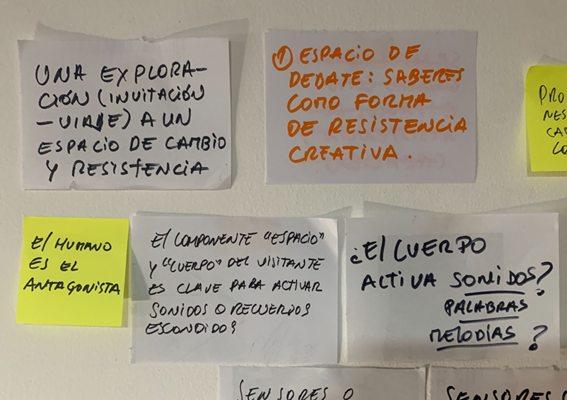 UNA EXPLORA-
CIÓN (INVITACIÓN
- VIAJE) A UN
ESPACIO DE CAMBIO
Y RESISTENCIA
① ESPACIO DE
DEBATE: SABERES
COMO FORMA
DE RESISTENCIA
CREATIVA.
PRO
NES
CA
CO
El HUMANO
ES EL
ANTAGONISTA
El COMPONENTE "ESPACIO"
Y "CUERPO" DEL VISITANTE
ES CLAVE PARA ACTIVAR
SONIDOS O RECUERDOS
ESCONDIDOS
¿El CUERPO
ACTIVA SONIDOS?
PALABRAS
MELODÍAS?
SENSORES O
SENSORES